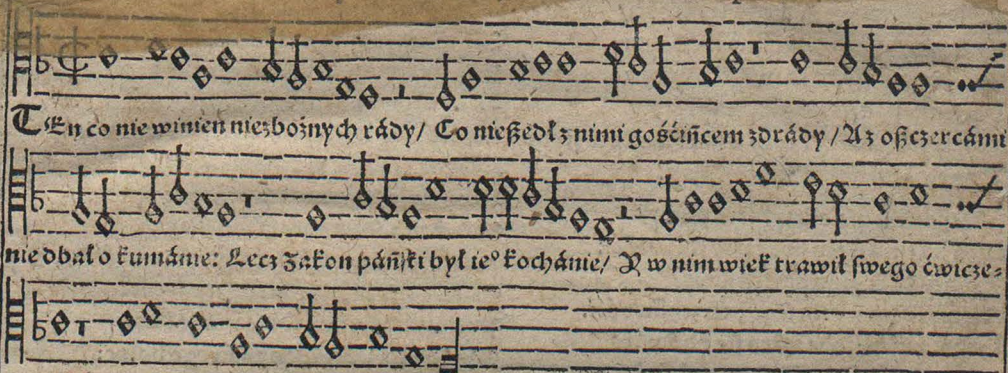 TEn co nie winien niezbożnych rády/ Co nießedł z nimi gośćińcem zdrády/ Az oßczercámi
nie dbał o kumánie: Lecz Zakon páńſki był ieº kochánie/ Y w nim wiek trawił ſwego ćwicze⸗